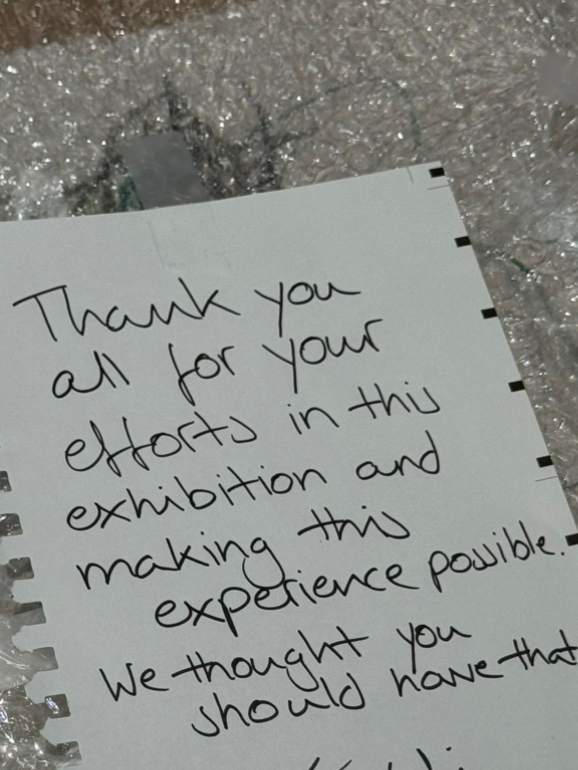 Thank you
all for your
efforts in this
exhibition and
making this
experience possible.
We thought you
should have that